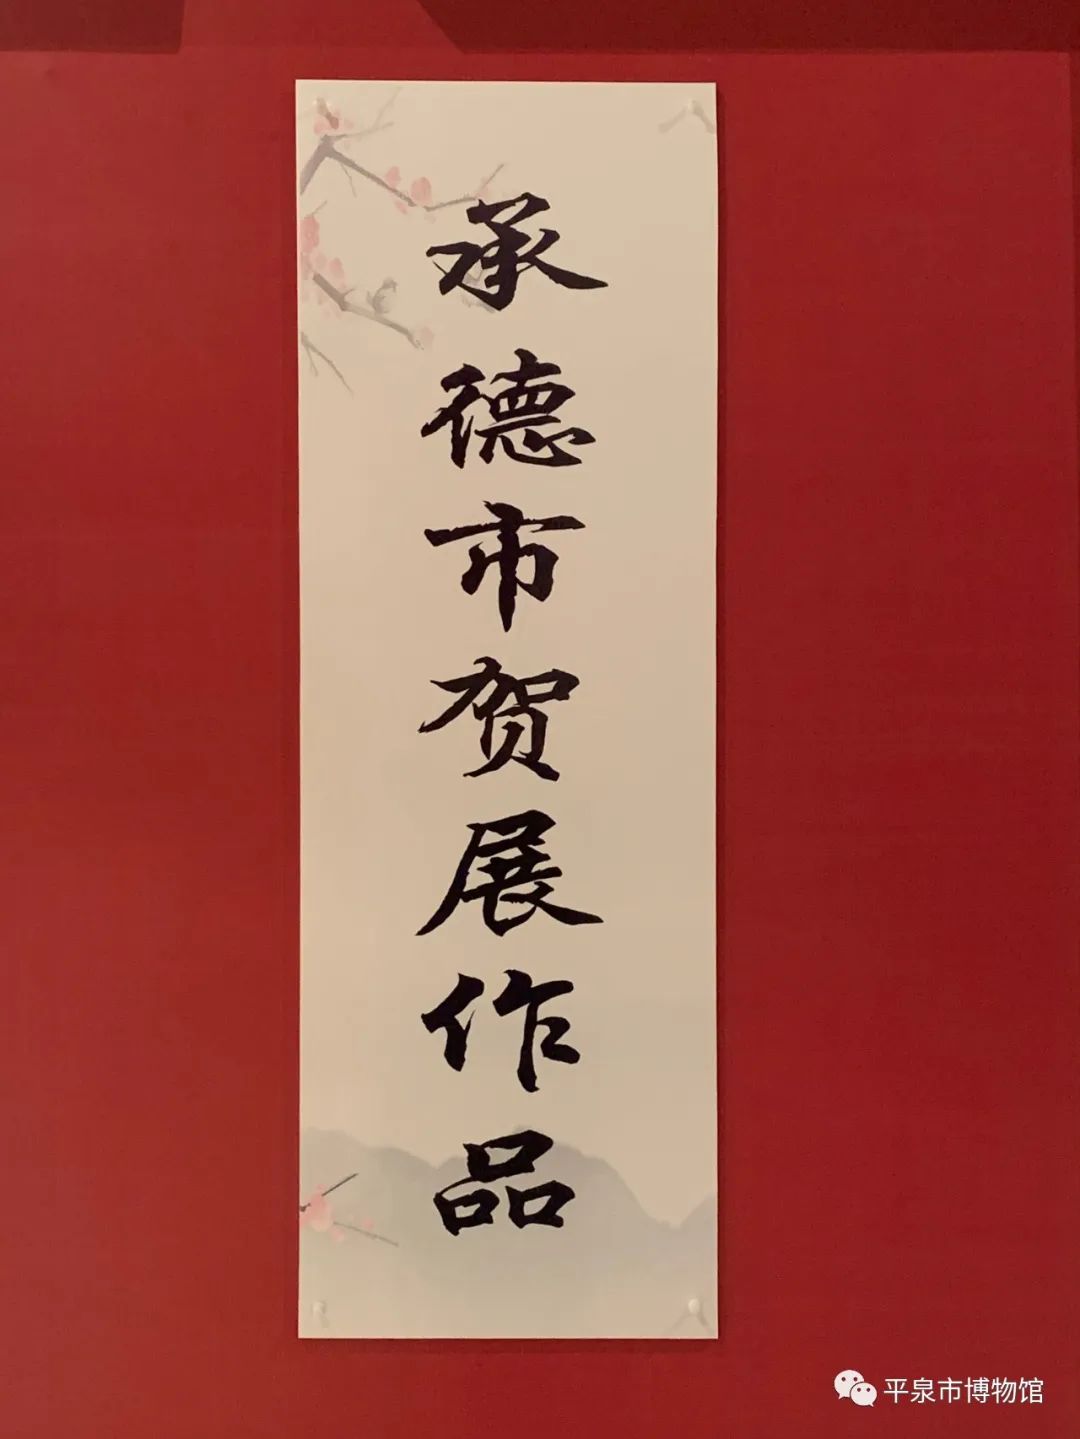 承德市贺展作品
平泉市博物馆